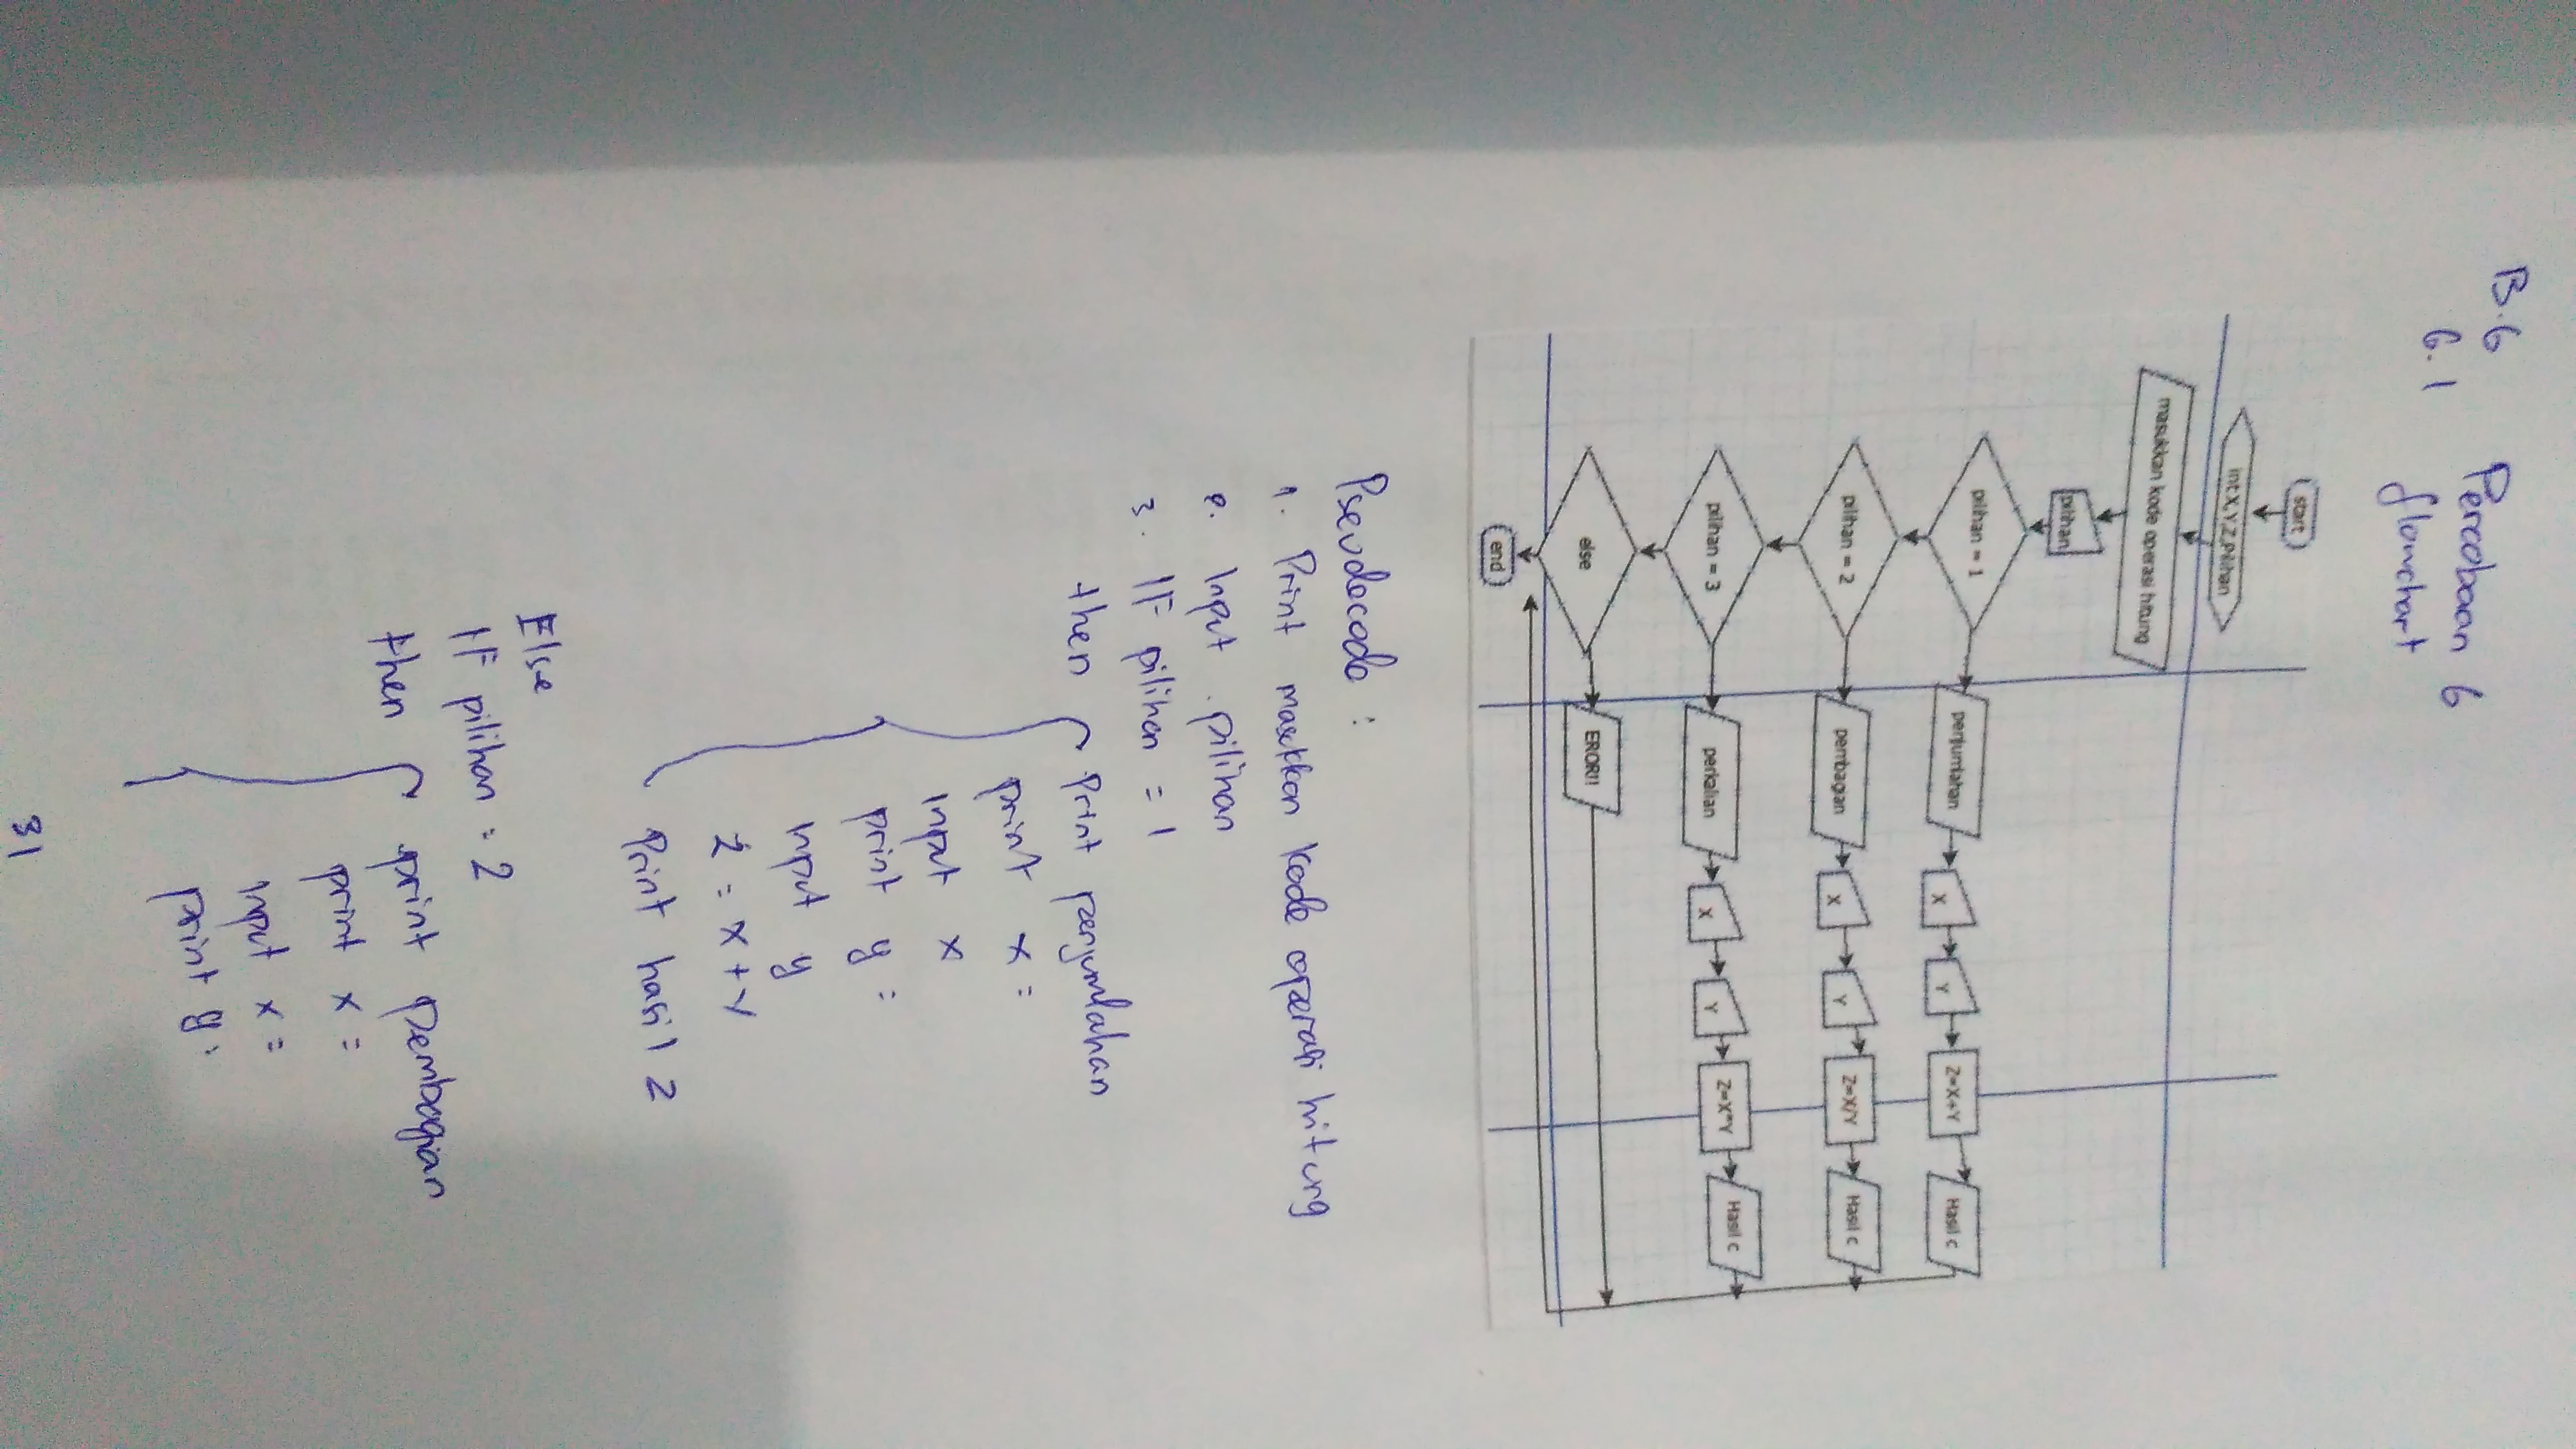 B.6 Percobaan 6
6.1 flowchart
start
int X,Y,Z,Pilihan
masukkan kode operasi hitung
pilihan
pilihan = 1
penjumlahan
X
Y
Z=X+Y
Hasil c
pilihan = 2
pembagian
X
Y
Z=X/Y
Hasil c
pilihan = 3
perkalian
X
Y
Z=X*Y
Hasil c
else
EROR!!
end
Pseudecode :
1. Print masukkan kode operasi hitung
2. Input pilihan
3. IF pilihan = 1
then Print penjumlahan
print x =
Input x
print y =
Input y
Z = X + Y
Print hasil Z
Else
IF pilihan = 2
then print pembagian
print x =
Input x =
print y :
31